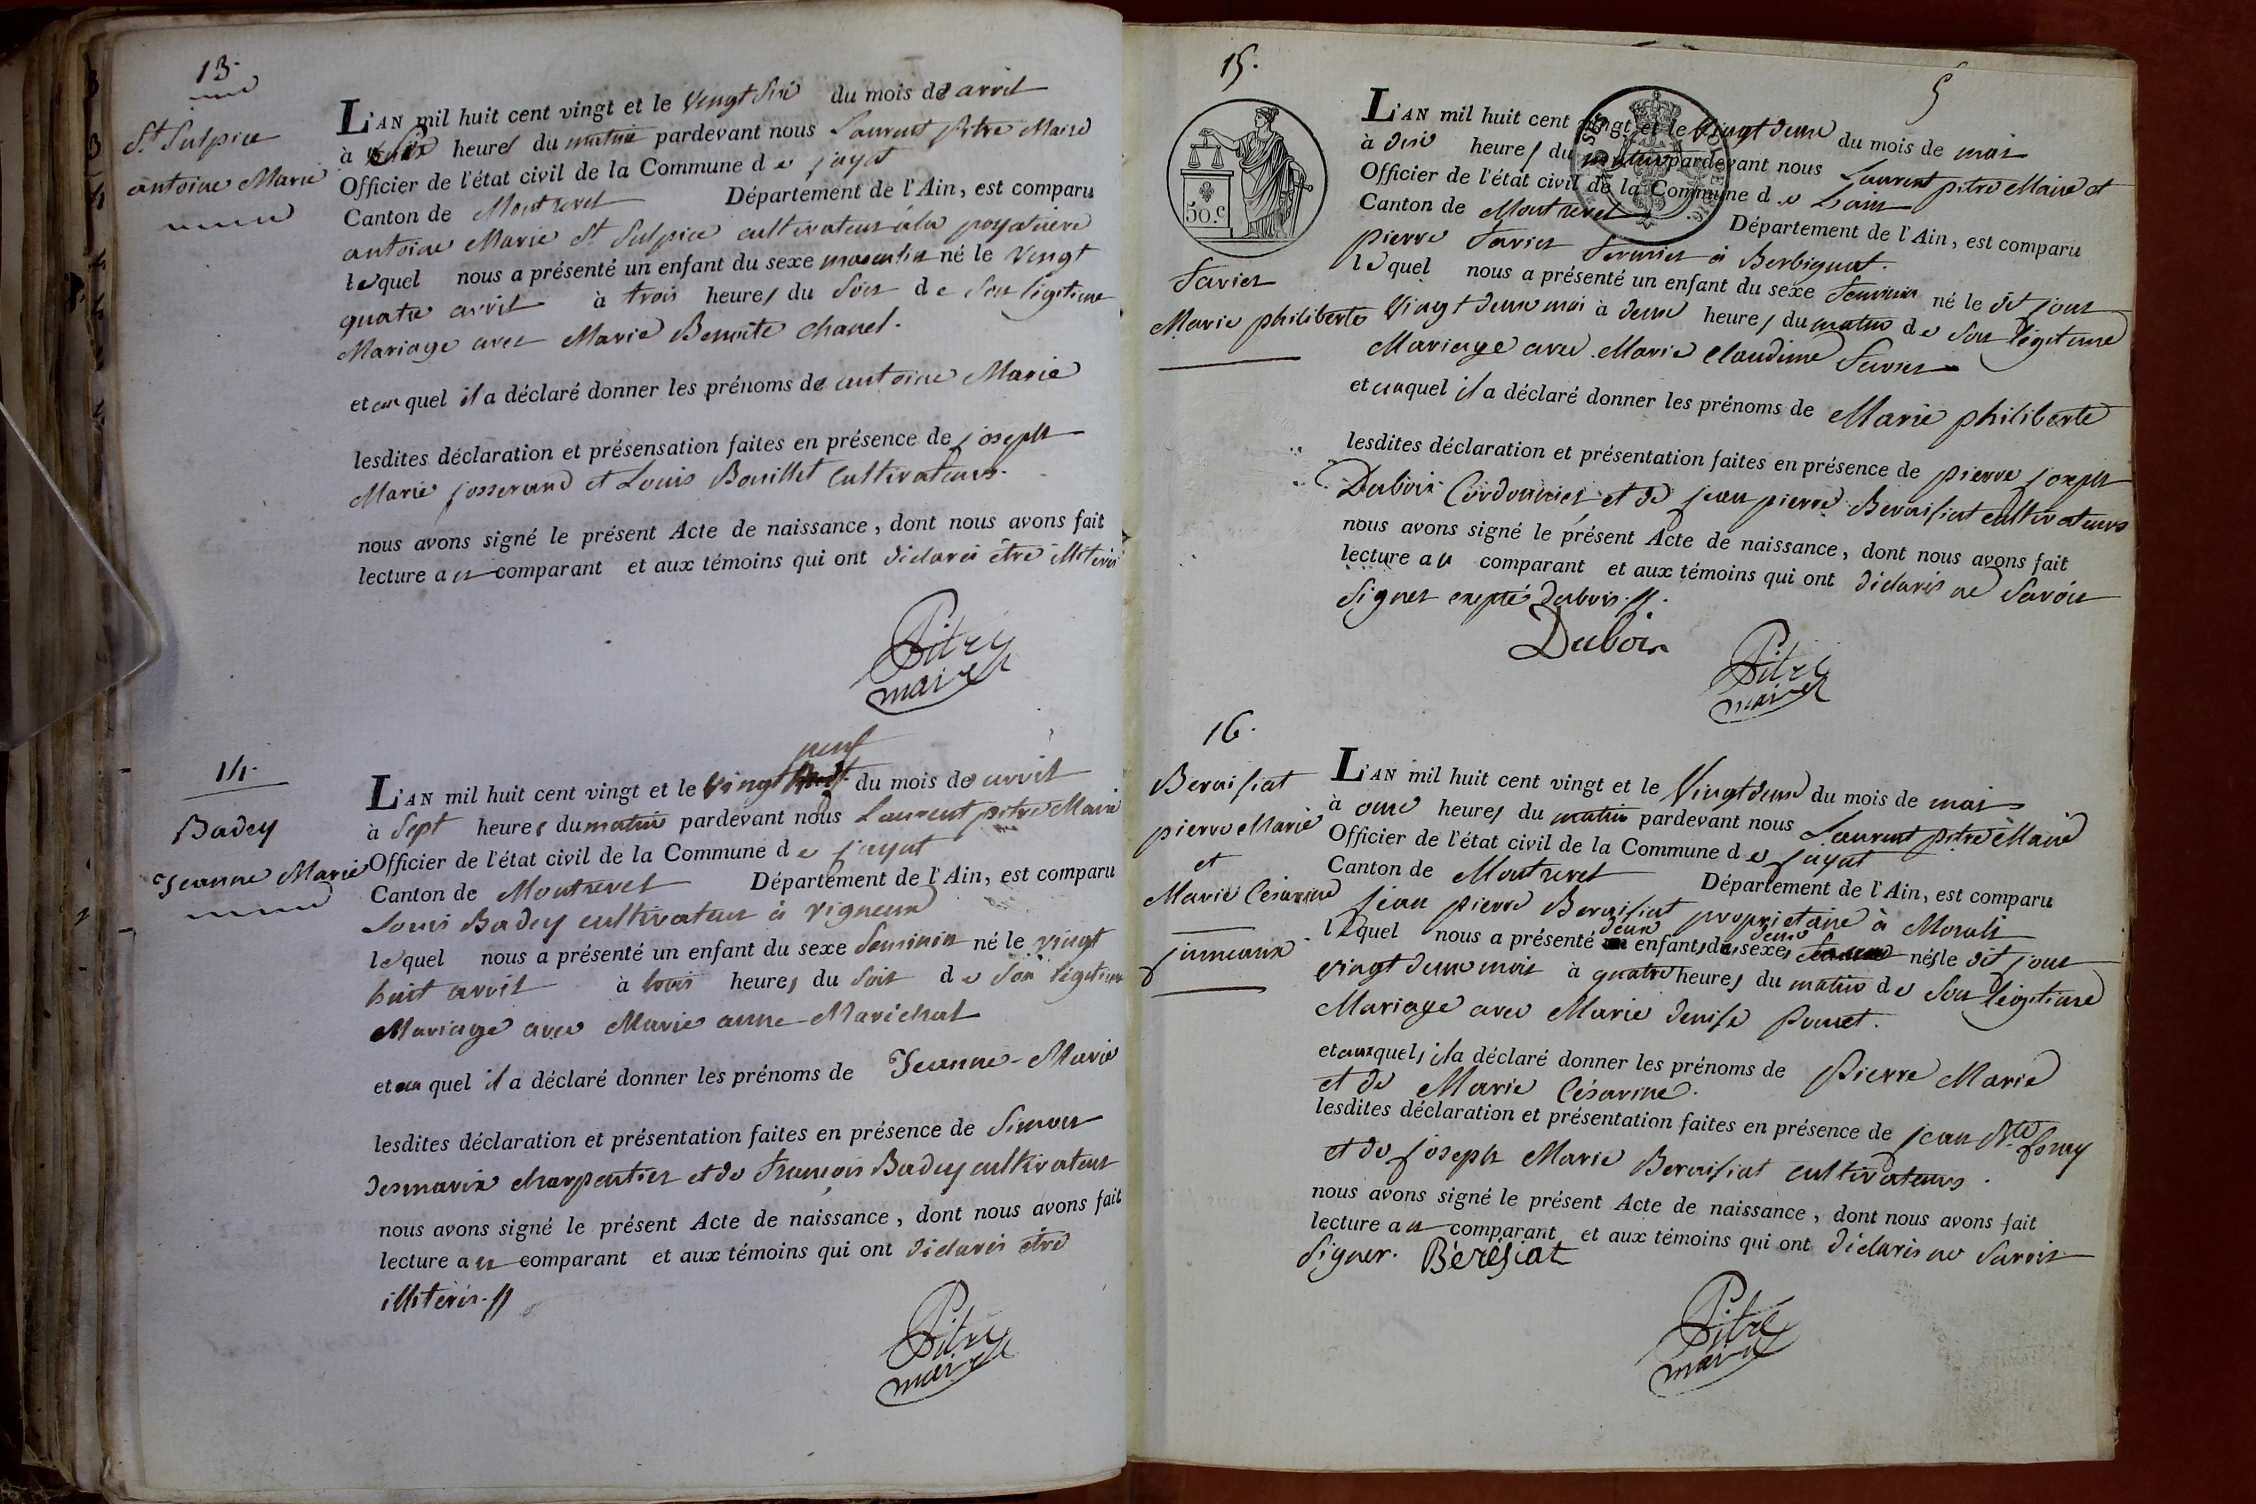 13.
St Sulpice
antoine Marie
L'AN mil huit cent vingt et le Vingt Six du mois de avril
à Six heures du matin pardevant nous Laurent pitre Maire
Officier de l'état civil de la Commune de jayat
Canton de Montrevel Département de l'Ain, est comparu
antoine Marie St Sulpice cultivateur à la
lequel nous a présenté un enfant du sexe masculin né le Vingt
quatre avril à trois heures du Soir de Son légitime
Mariage avec Marie Benoite Chanel.
et au quel il a déclaré donner les prénoms de antoine Marie
lesdites déclaration et présensation faites en présence de joseph
Marie josserand et Louis Bouillet Cultivateurs.
nous avons signé le présent Acte de naissance, dont nous avons fait
lecture au comparant et aux témoins qui ont déclarés être illitérés
Pitre
maire
14.
Badey
Jeanne Marie
L'AN mil huit cent vingt et le Vingt neuf du mois de avril
à Sept heures du matin pardevant nous Laurent pitre Maire
Officier de l'état civil de la Commune de jayat
Canton de Montrevel Département de l'Ain, est comparu
Louis Badey cultivateur à vigneux
lequel nous a présenté un enfant du sexe feminin né le vingt
huit avril à trois heures du Soir de Son légitime
Mariage avec Marie anne Maréchal
et au quel il a déclaré donner les prénoms de Jeanne-Marie
lesdites déclaration et présentation faites en présence de Simon
Desmarix charpentier et de françois Badey cultivateur
nous avons signé le présent Acte de naissance, dont nous avons fait
lecture au comparant et aux témoins qui ont déclarés être
illitérés.
Pitre
maire
15.
5
50.c
favier
Marie philiberte
L'AN mil huit cent vingt et le Vingt deux du mois de mai
à dix heures du matin pardevant nous Laurent pitre Maire et
Officier de l'état civil de la Commune de
Canton de Montrevel Département de l'Ain, est comparu
pierre favier fermier à Berbignat.
lequel nous a présenté un enfant du sexe feminin né le dit jour
Vingt deux mai à deux heures du matin de Son légitime
Mariage avec Marie Claudine
et auquel il a déclaré donner les prénoms de Marie philiberte
lesdites déclaration et présentation faites en présence de pierre joseph
Dubois Cordonnier et de jean pierre Beraisiat cultivateurs
nous avons signé le présent Acte de naissance, dont nous avons fait
lecture au comparant et aux témoins qui ont déclarés ne Savoir
Signer excpté dubois.
Dubois
Pitre
maire
16.
Beraisiat
pierre Marie
et
Marie Césarine
jumeaux
L'AN mil huit cent vingt et le Vingt deux du mois de mai
à onze heures du matin pardevant nous Laurent pitre Maire
Officier de l'état civil de la Commune de jayat
Canton de Montrevel Département de l'Ain, est comparu
jean pierre Beraisiat propriétaire à Monali
lequel nous a présenté deux enfants de sexes deux nés le dit jour
vingt deux mai à quatre heures du matin de Son légitime
Mariage avec Marie denise
et auxquels il a déclaré donner les prénoms de Pierre Marie
et de Marie Césarine.
lesdites déclaration et présentation faites en présence de jean
et de joseph Marie Beraisiat cultivateurs.
nous avons signé le présent Acte de naissance, dont nous avons fait
lecture au comparant et aux témoins qui ont déclarés ne Savoir
Signer. Bérésiat
Pitre
maire